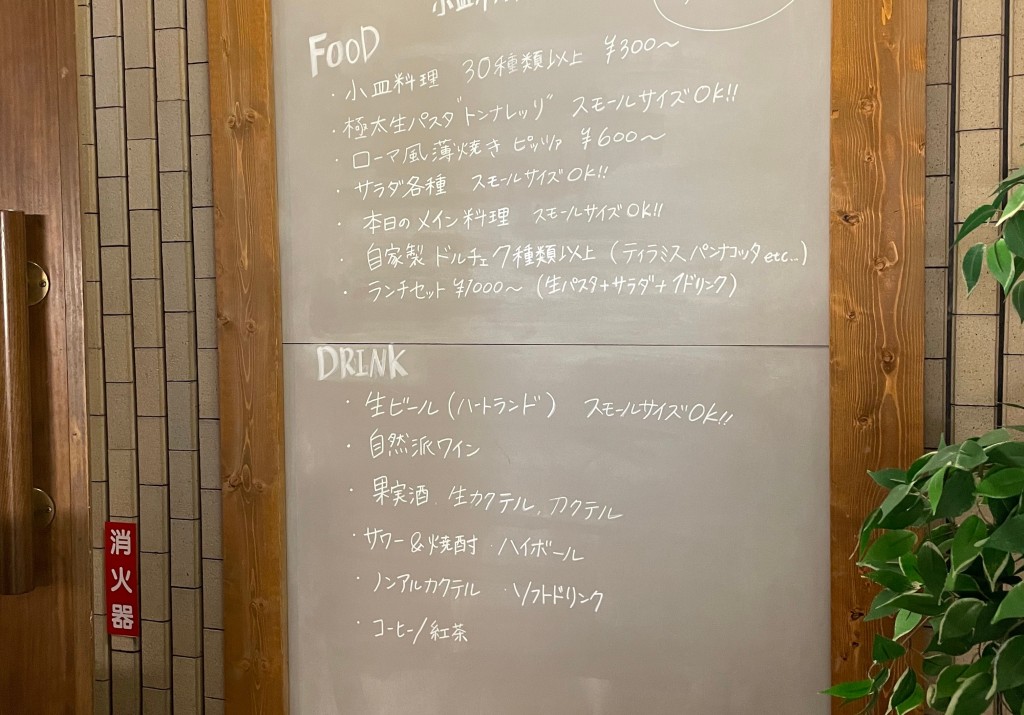 FOOD
・小皿料理 30種類以上 ¥300〜
・極太生パスタ"トンナレッリ" スモールサイズOK!!
・ローマ風薄焼きピッツァ ¥600〜
・サラダ各種 スモールサイズOK!!
・本日のメイン料理 スモールサイズOK!!
・自家製ドルチェ7種類以上 (ティラミス パンナコッタetc...)
・ランチセット ¥1000〜 (生パスタ+サラダ+1ドリンク)
DRINK
・生ビール(ハートランド) スモールサイズOK!!
・自然派ワイン
・果実酒、生カクテル、カクテル
・サワー&焼酎 ・ハイボール
・ノンアルカクテル ・ソフトドリンク
・コーヒー/紅茶
消火器